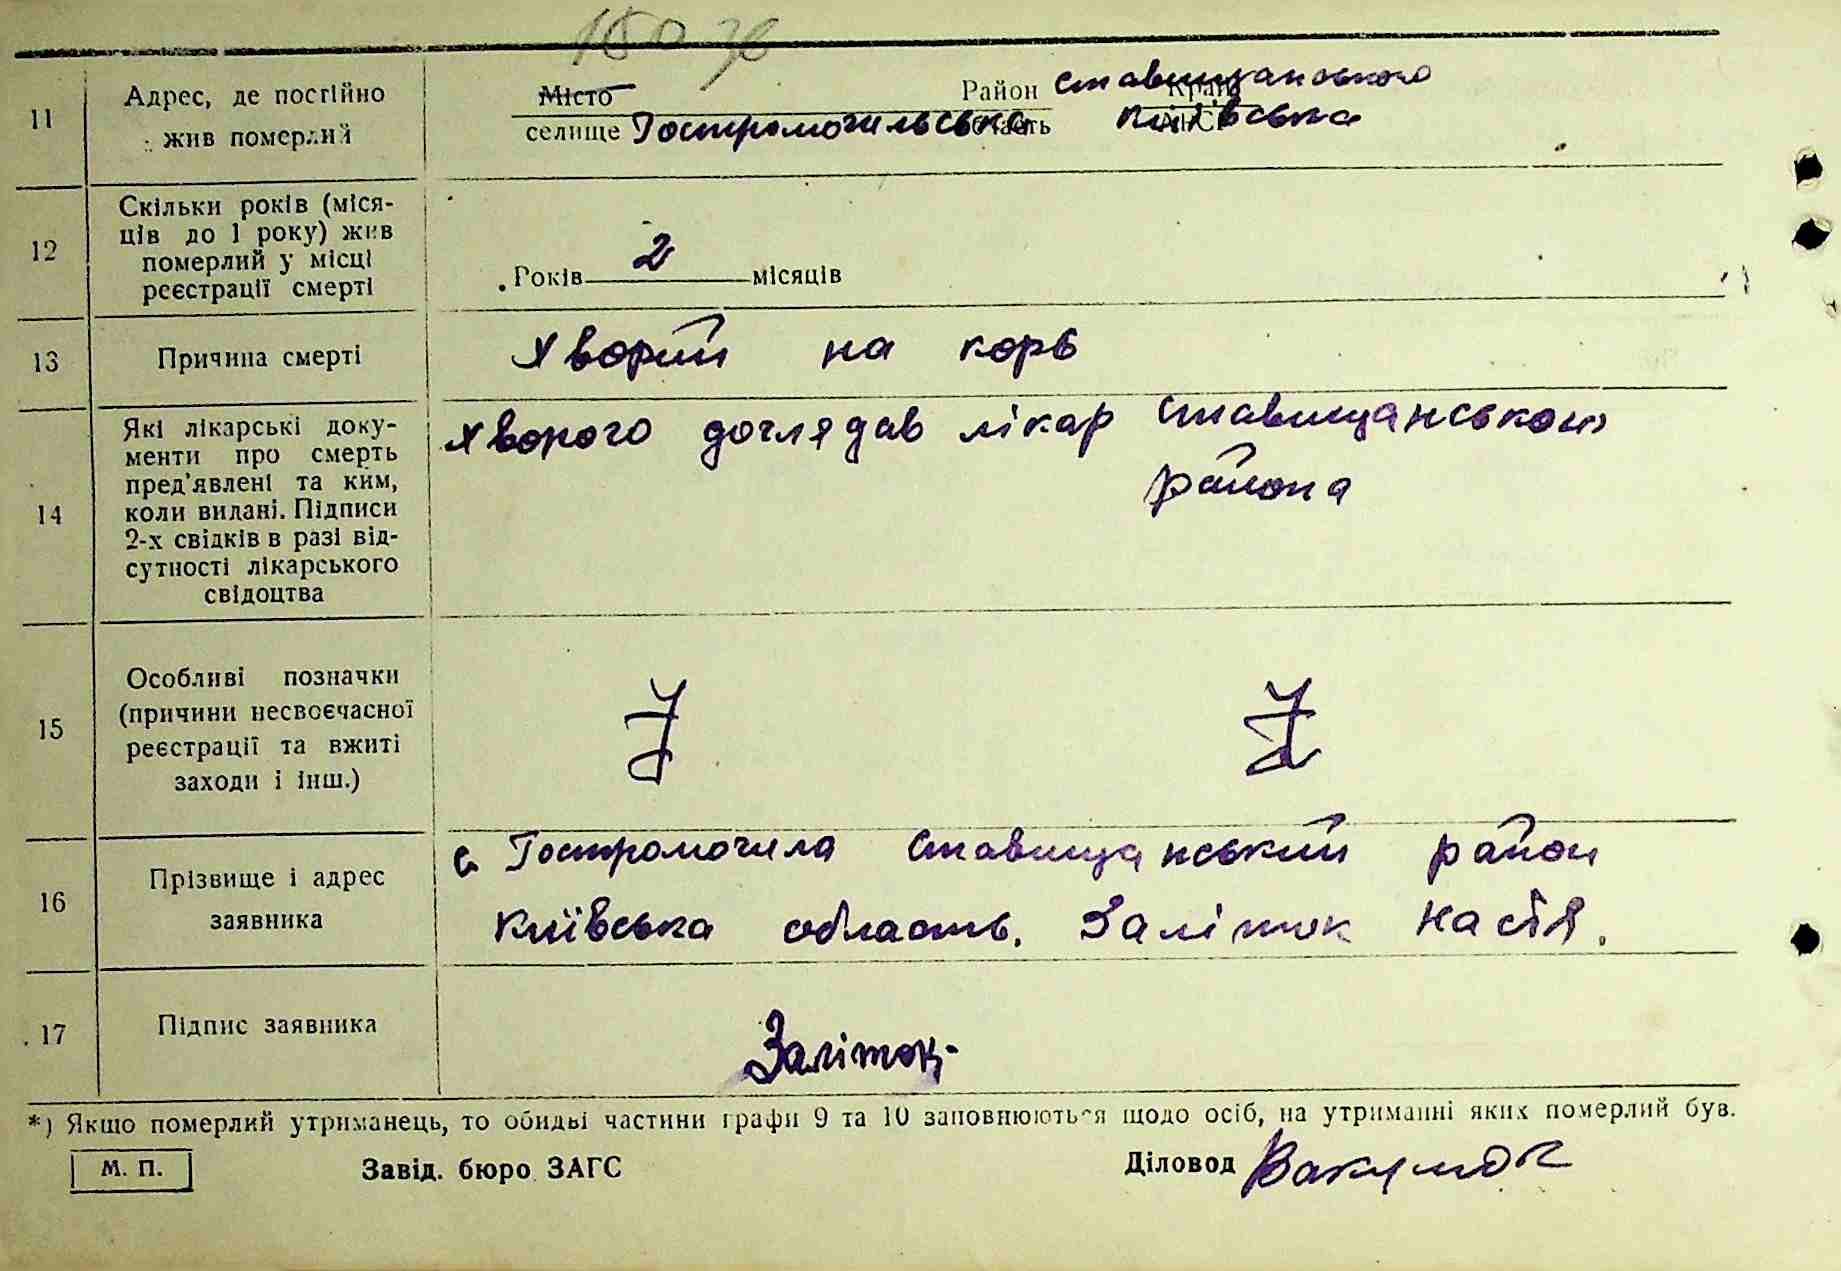 11
Адрес, де постійно
жив померлий
Місто Район Ставищанського Край
селище Гостромогильська Область Київська
12
Скільки років (міся-
ців до 1 року) жив
померлий у місці
реєстрації смерті
Років 2 місяців
13
Причина смерті
Хворий на корь
14
Які лікарські доку-
менти про смерть
пред'явлені та ким,
коли видані. Підписи
2-х свідків в разі від-
сутності лікарського
свідоцтва
Хворого доглядав лікар Ставищанського
района
15
Особливі позначки
(причини несвоєчасної
реєстрації та вжиті
заходи і інш.)
16
Прізвище і адрес
заявника
с Гостромогила Ставищанський район
Київська область. Заліток Настя.
17
Підпис заявника
Заліток
*) Якщо померлий утриманець, то обидві частини графи 9 та 10 заповнюються щодо осіб, на утриманні яких померлий був.
М. П.
Завід. бюро ЗАГС
Діловод